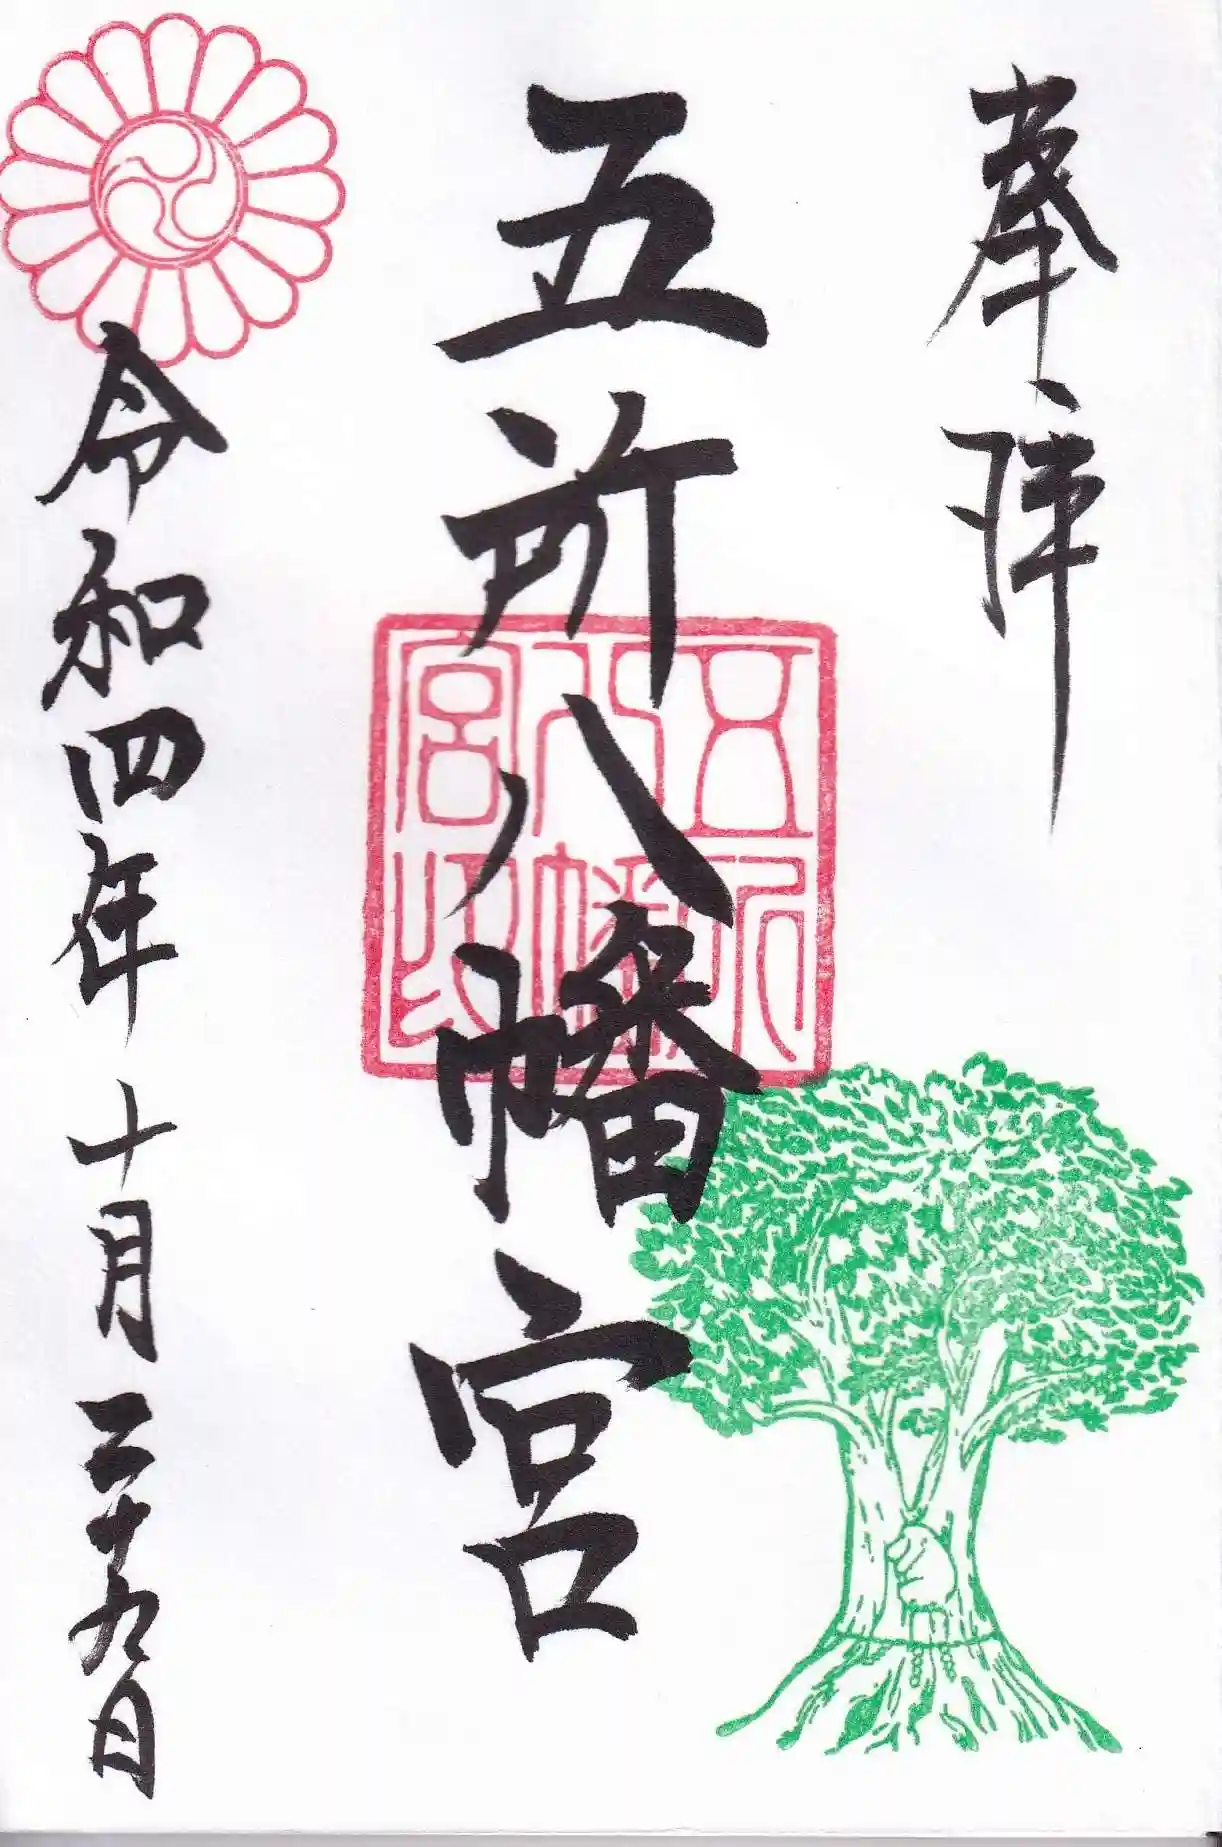 奉拝
五所八幡宮
五所八幡宮印
令和四年十月二十九日